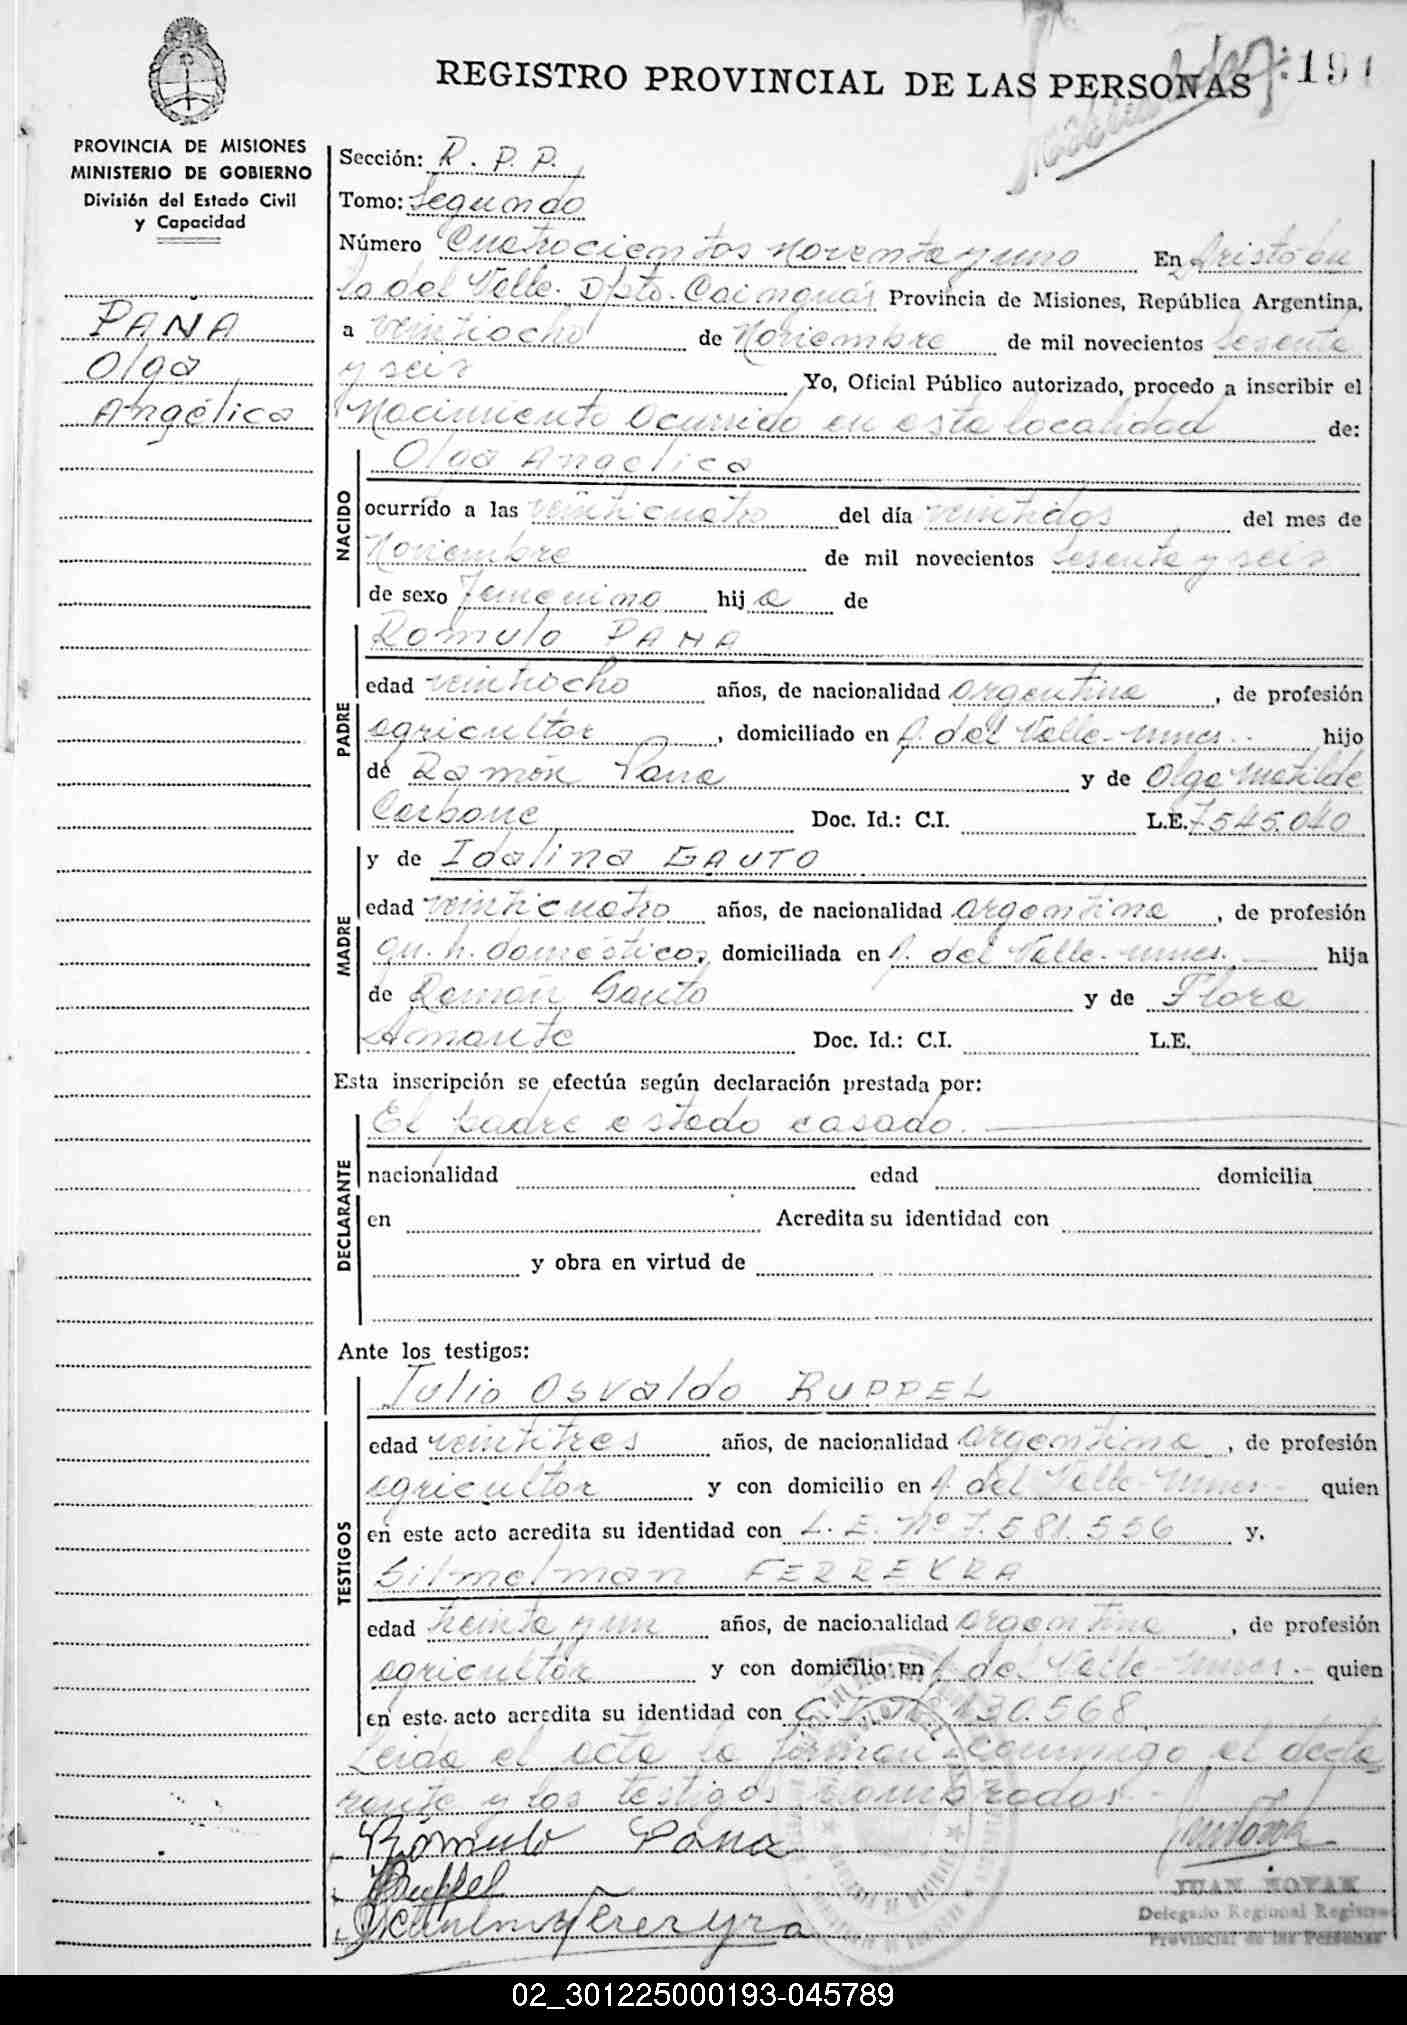 REGISTRO PROVINCIAL DE LAS PERSONAS
191
PROVINCIA DE MISIONES
MINISTERIO DE GOBIERNO
División del Estado Civil
y Capacidad
PANA
Olga
Angélica
Sección: R. P. P.
Tomo: Segundo
Número Cuatrocientos noventa y uno En Aristóbu
lo del Valle. Dpto. Cainguás Provincia de Misiones, República Argentina,
a veintiocho de Noviembre de mil novecientos sesenta
y seis Yo, Oficial Público autorizado, procedo a inscribir el
Nacimiento Ocurrido en esta localidad de:
NACIDO
Olga Angelica
ocurrido a las veinticuatro del día veintidos del mes de
Noviembre de mil novecientos sesenta y seis
de sexo femenino hij a de
PADRE
Romulo PANA
edad veintiocho años, de nacionalidad argentina, de profesión
agricultor, domiciliado en A. del Valle-mnes. hijo
de Ramón Pana y de Olga Matilde
Carbone Doc. Id.: C.I. L.E. 7545.040
MADRE
y de Idalina GAUTO
edad veinticuatro años, de nacionalidad argentina, de profesión
qu. h. domésticos, domiciliada en A. del Valle-mnes. hija
de Ramón Gauto y de Flora
Amante Doc. Id.: C.I. L.E.
Esta inscripción se efectúa según declaración prestada por:
DECLARANTE
El padre estado casado.
nacionalidad edad domicilia
en Acredita su identidad con
y obra en virtud de
Ante los testigos:
TESTIGOS
Julio Osvaldo RUPPEL
edad veintitres años, de nacionalidad argentina, de profesión
agricultor y con domicilio en A. del Valle-mnes- quien
en este acto acredita su identidad con L. E. Nº 7.581.556 y.
FERREYRA
edad treinta y un años, de nacionalidad argentina, de profesión
agricultor y con domicilio en A. del Valle-mnes.- quien
en este acto acredita su identidad con C.I. Nº 130.568
Leida el acta la firman conmigo el decla
rante y los testigos nombrados.-
Rómulo Pana
Ruppel
Fereryra
JUAN NOVAK
Delegado Regional Registro
Provincial de las Personas
02_301225000193-045789